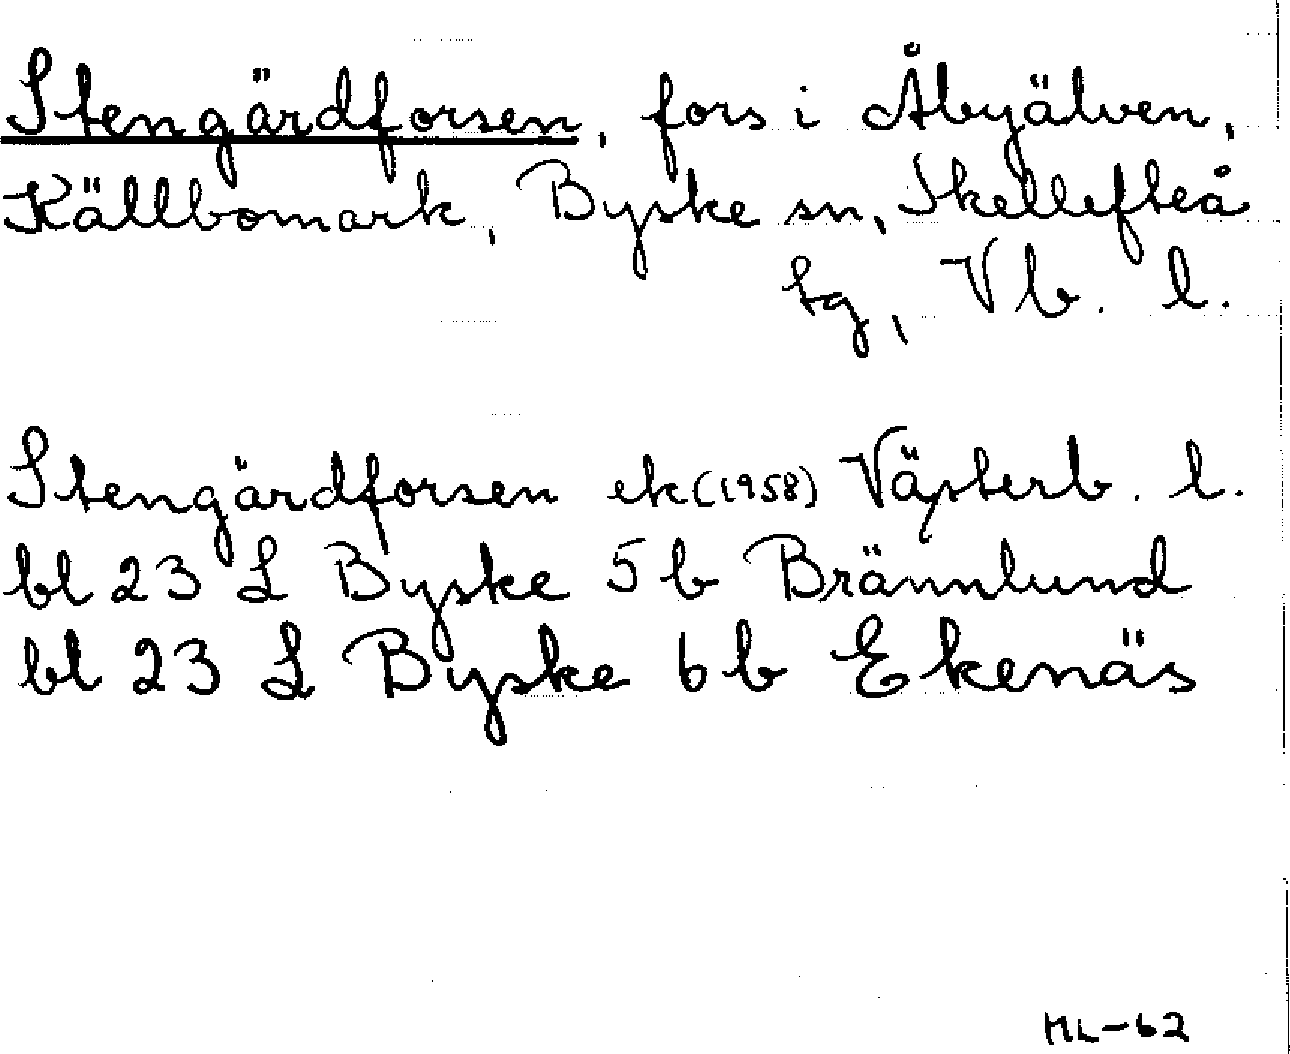 Stengärdforsen, fors i Åbyälven,
Källbomark, Byske sn, Skellefteå
tg, Vb. l.
Stengärdforsen ek (1958) Västerb. l.
bl 23 L Byske 5 b Brännlund
bl 23 L Byske 6 b Ekenäs
ML-62